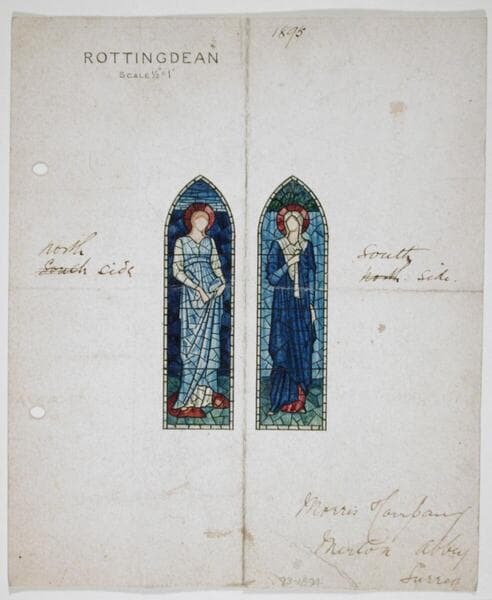 1895
ROTTINGDEAN
SCALE ½" = 1'
north
South side
South
north side.
Morris & Company
Merton Abbey
Surrey